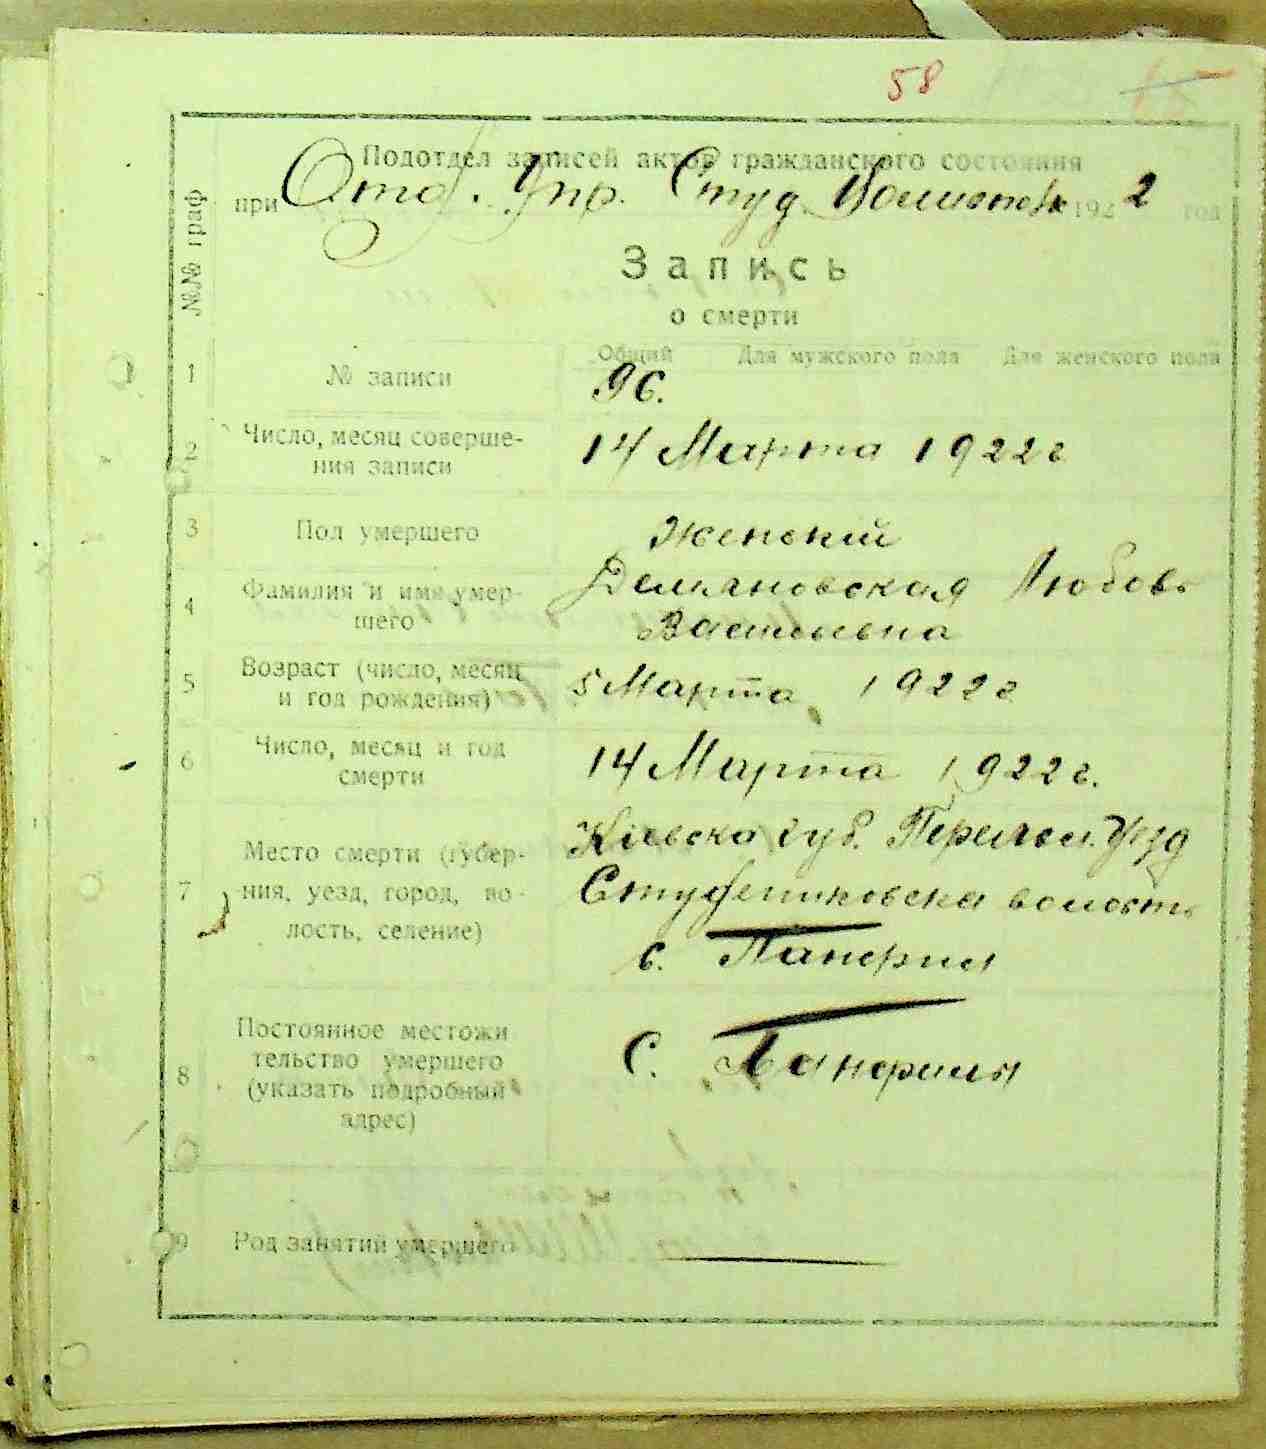 58
Подотдел записей актов гражданского состояния
при Отд. Упр. Студ. Волисполк 1922 год
№№ граф
Запись
о смерти
Общий Для мужского пола Для женского пола
1 № записи 96.
2 Число, месяц соверше-
ния записи
14 Марта 1922 г
3 Пол умершего Женский
4 Фамилия и имя умер-
шего
Демяновская Любовь
Васильевна
5 Возраст (число, месяц
и год рождения)
5 Марта 1922 г
6 Число, месяц и год
смерти
14 Марта 1922 г.
7 Место смерти (губер-
ния, уезд, город, во-
лость, селение)
Кіевска губ. Уезд
волость
с. Панфилы
8 Постоянное местожи
тельство умершего
(указать подробный
адрес)
С. Панфилы
9 Род занятий умершего